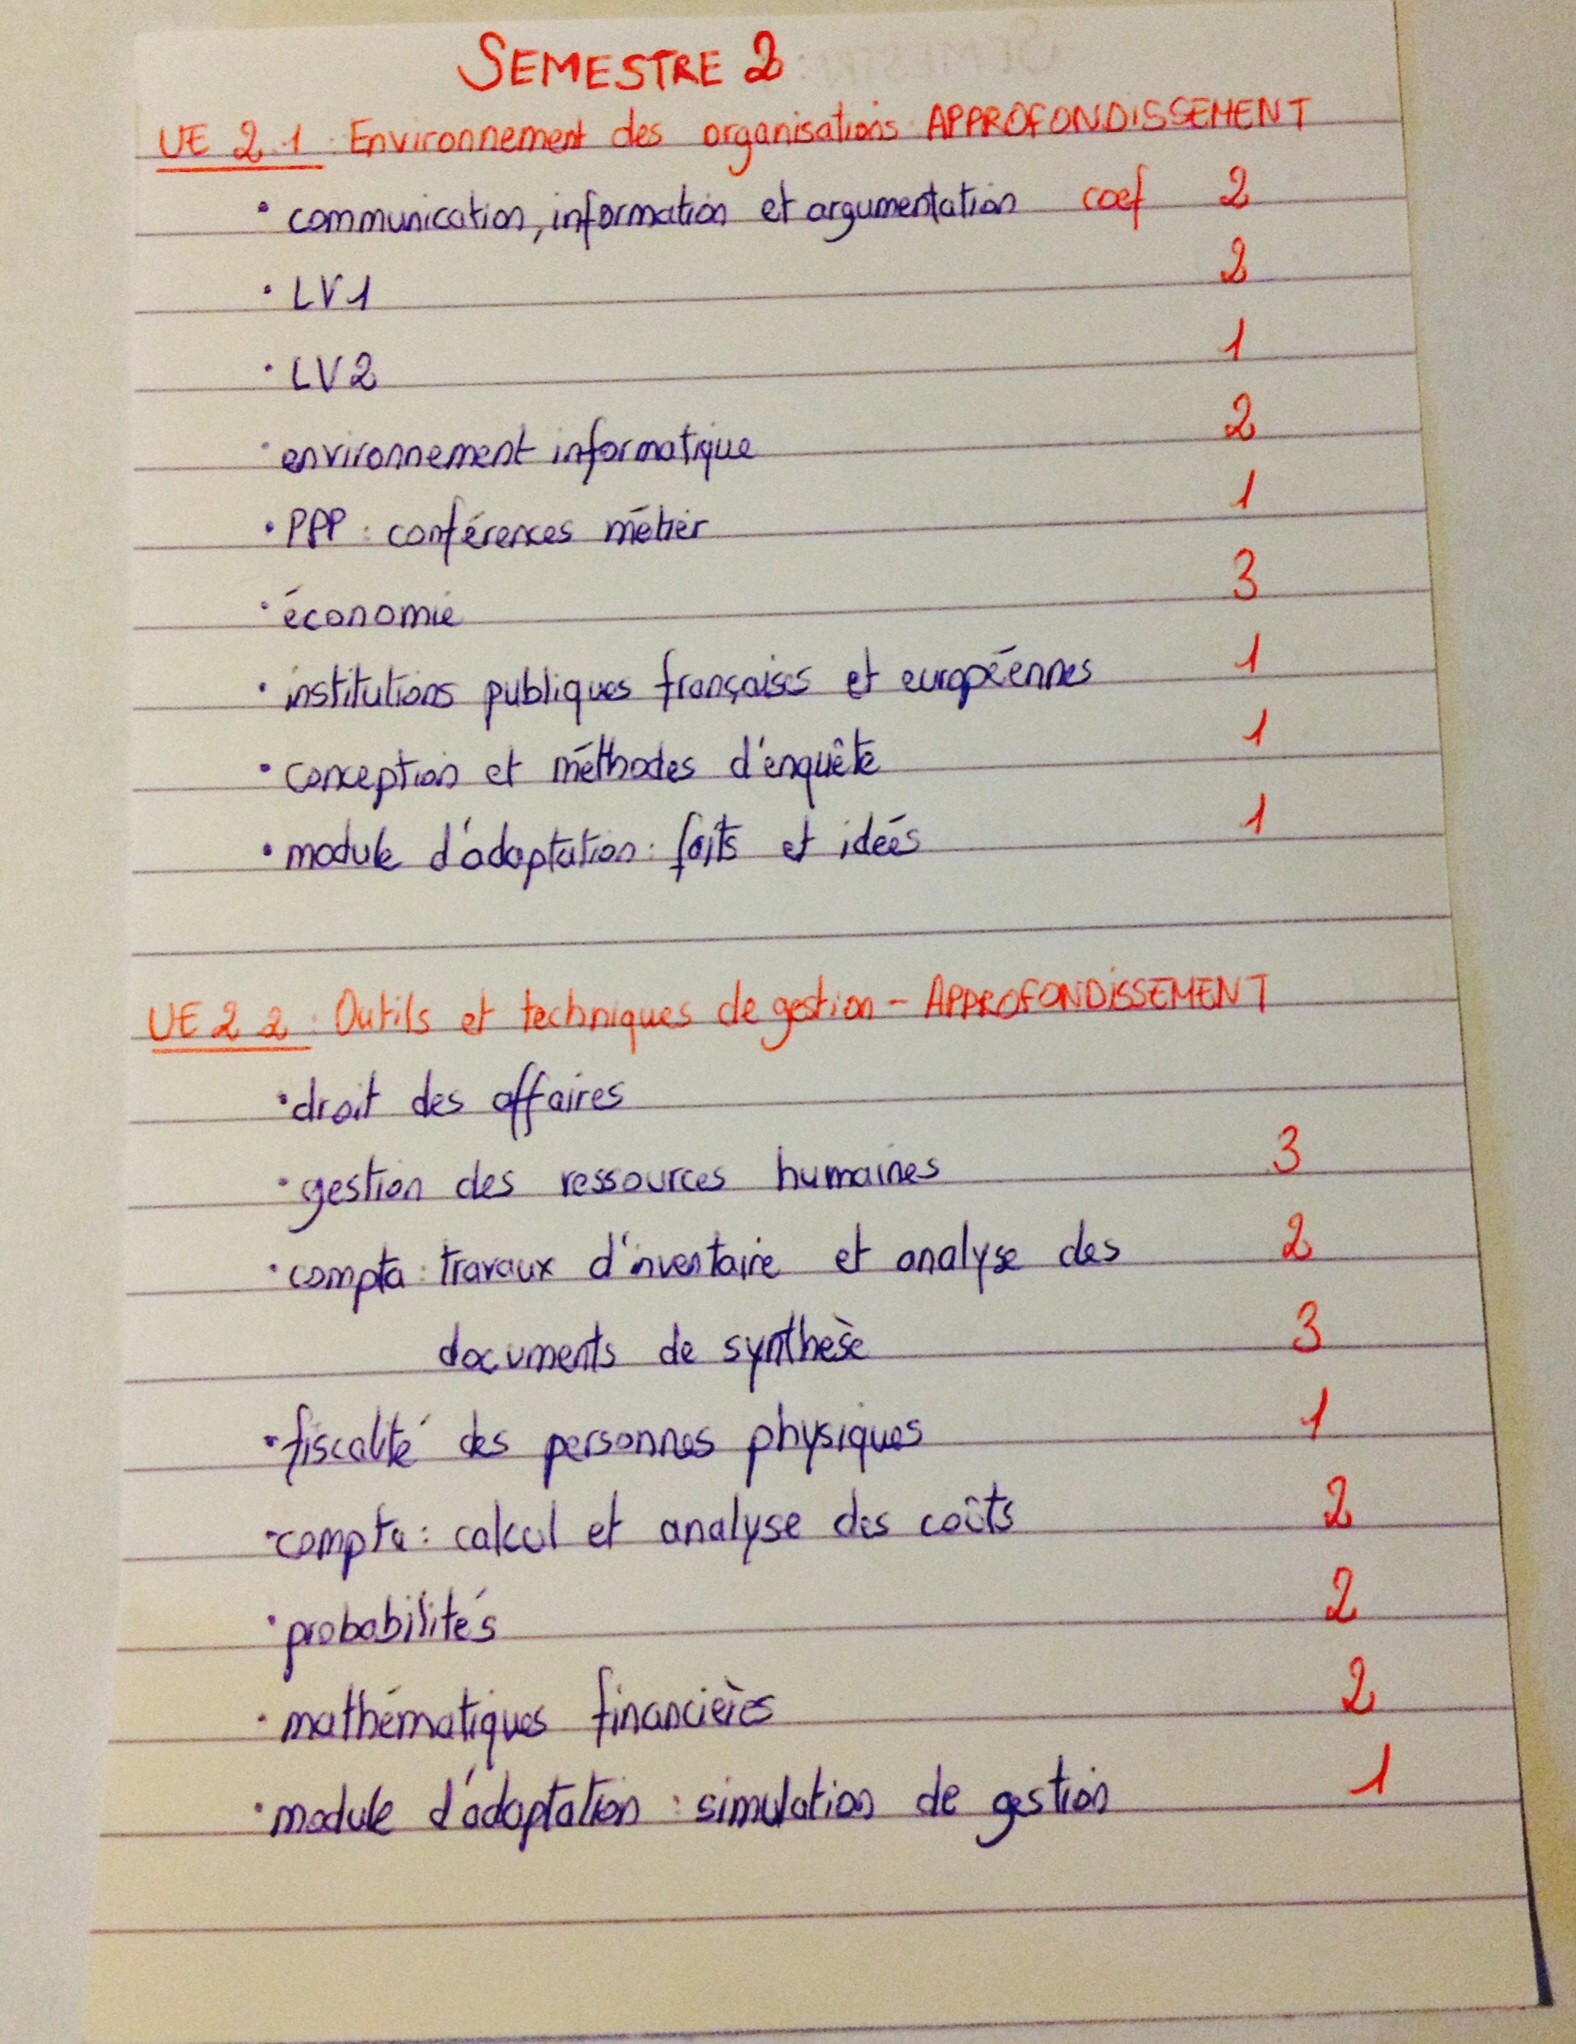 SEMESTRE 2
UE 2.1 : Environnement des organisations APPROFONDISSEMENT
• communication, information et argumentation coef 2
• LV1 2
• LV2 1
• environnement informatique 2
• PPP : conférences métier 1
• économie 3
• institutions publiques françaises et européennes 1
• conception et méthodes d'enquête 1
• module d'adaptation : faits et idées 1
UE 2 2 : Outils et techniques de gestion - APPROFONDISSEMENT
• droit des affaires
• gestion des ressources humaines 3
• compta : travaux d'inventaire et analyse des 2
documents de synthèse 3
• fiscalité des personnes physiques 1
• compta : calcul et analyse des coûts 2
• probabilités 2
• mathématiques financières 2
• module d'adaptation : simulation de gestion 1